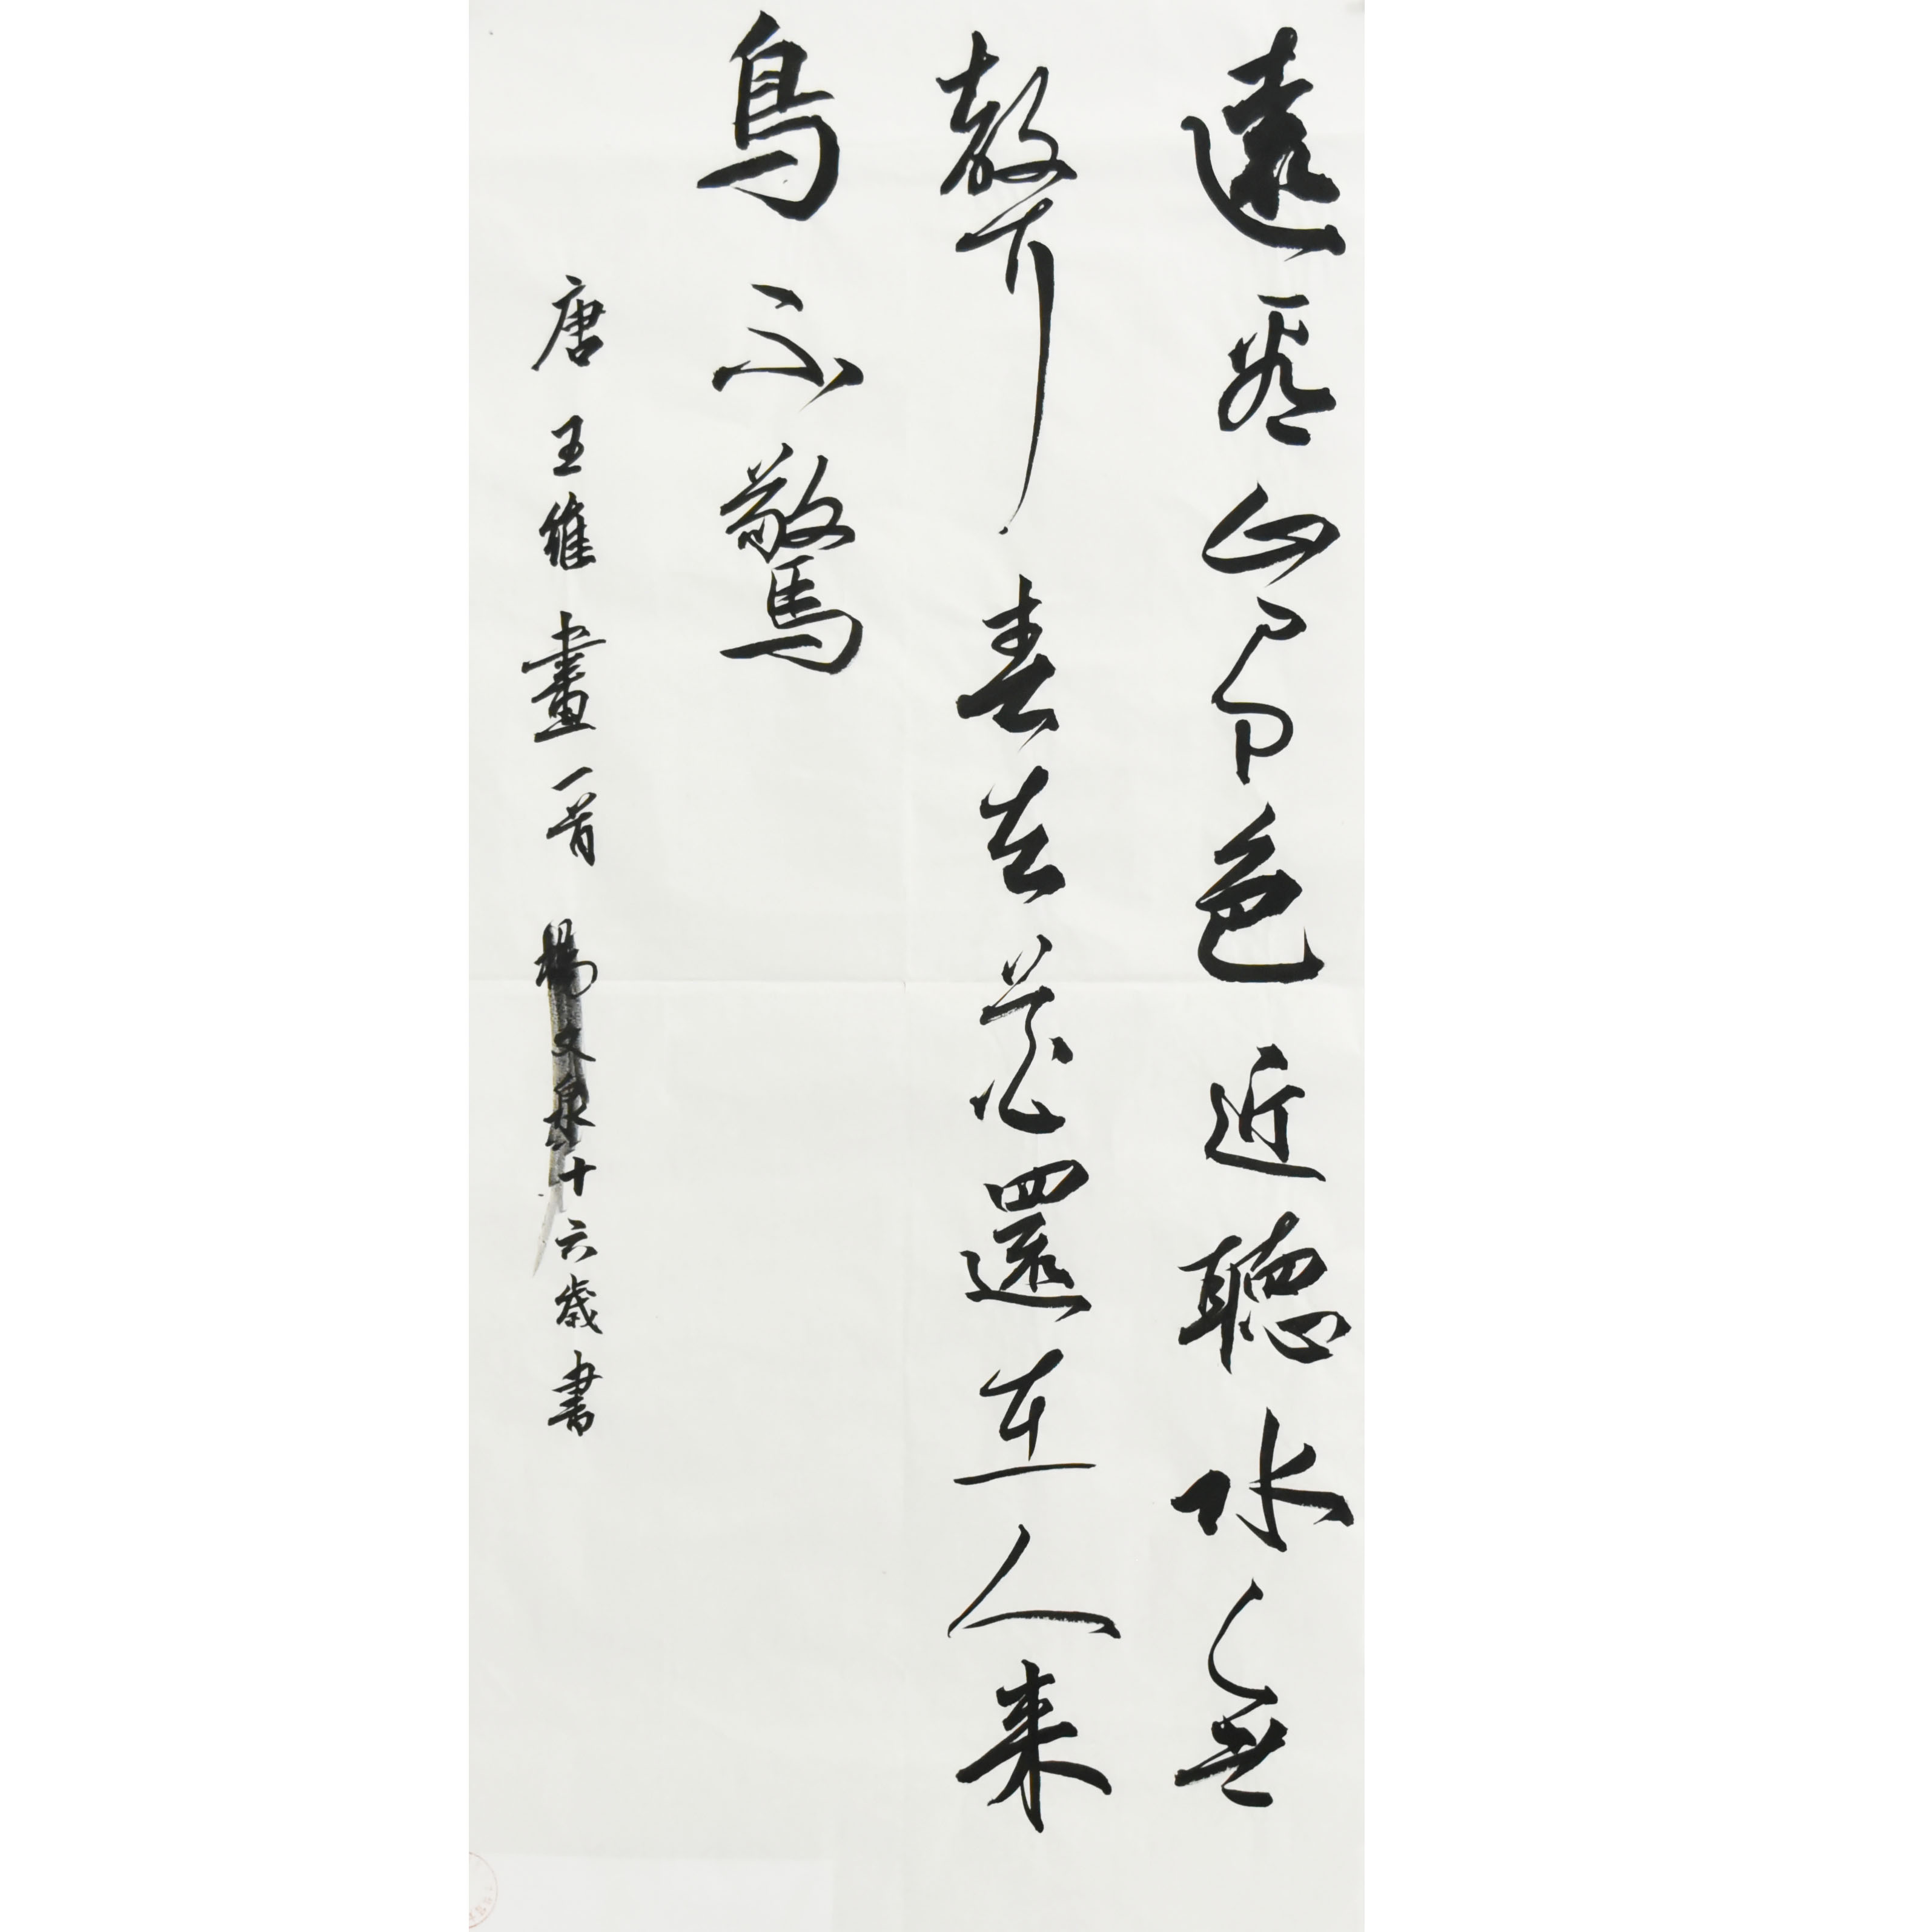 遠看山有色近聽水無
聲春去花還在人来
鳥不驚
唐王維畫一首楊文泉十六歲書